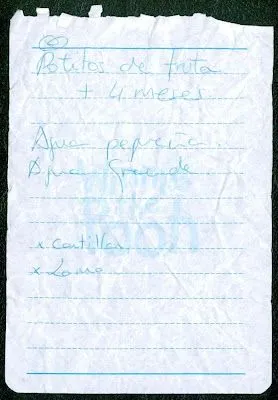 Potitos de fruta
+ 4 meses
Agua pequeña.
Agua Grande
x Costillas
x Lomo